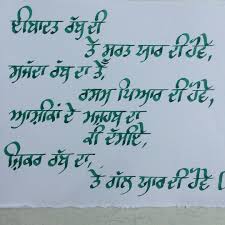 ਈਬਾਦਤ ਰੱਬ ਦੀ
ਤੇ ਸੂਰਤ ਯਾਰ ਦੀ ਹੋਵੇ,
ਸਜਦਾ ਰੱਬ ਦਾ ਤੇਂ,
ਰਸਮ ਪਿਆਰ ਦੀ ਹੋਵੇ,
ਆਸ਼ਿਕਾਂ ਦੇ ਮਜਹਬ ਦਾ
ਕੀ ਦੱਸਦੇ,
ਜ਼ਿਕਰ ਰੱਬ ਦਾ,
ਤੇ ਗੱਲ ਯਾਰ ਦੀ ਹੋਵੇ